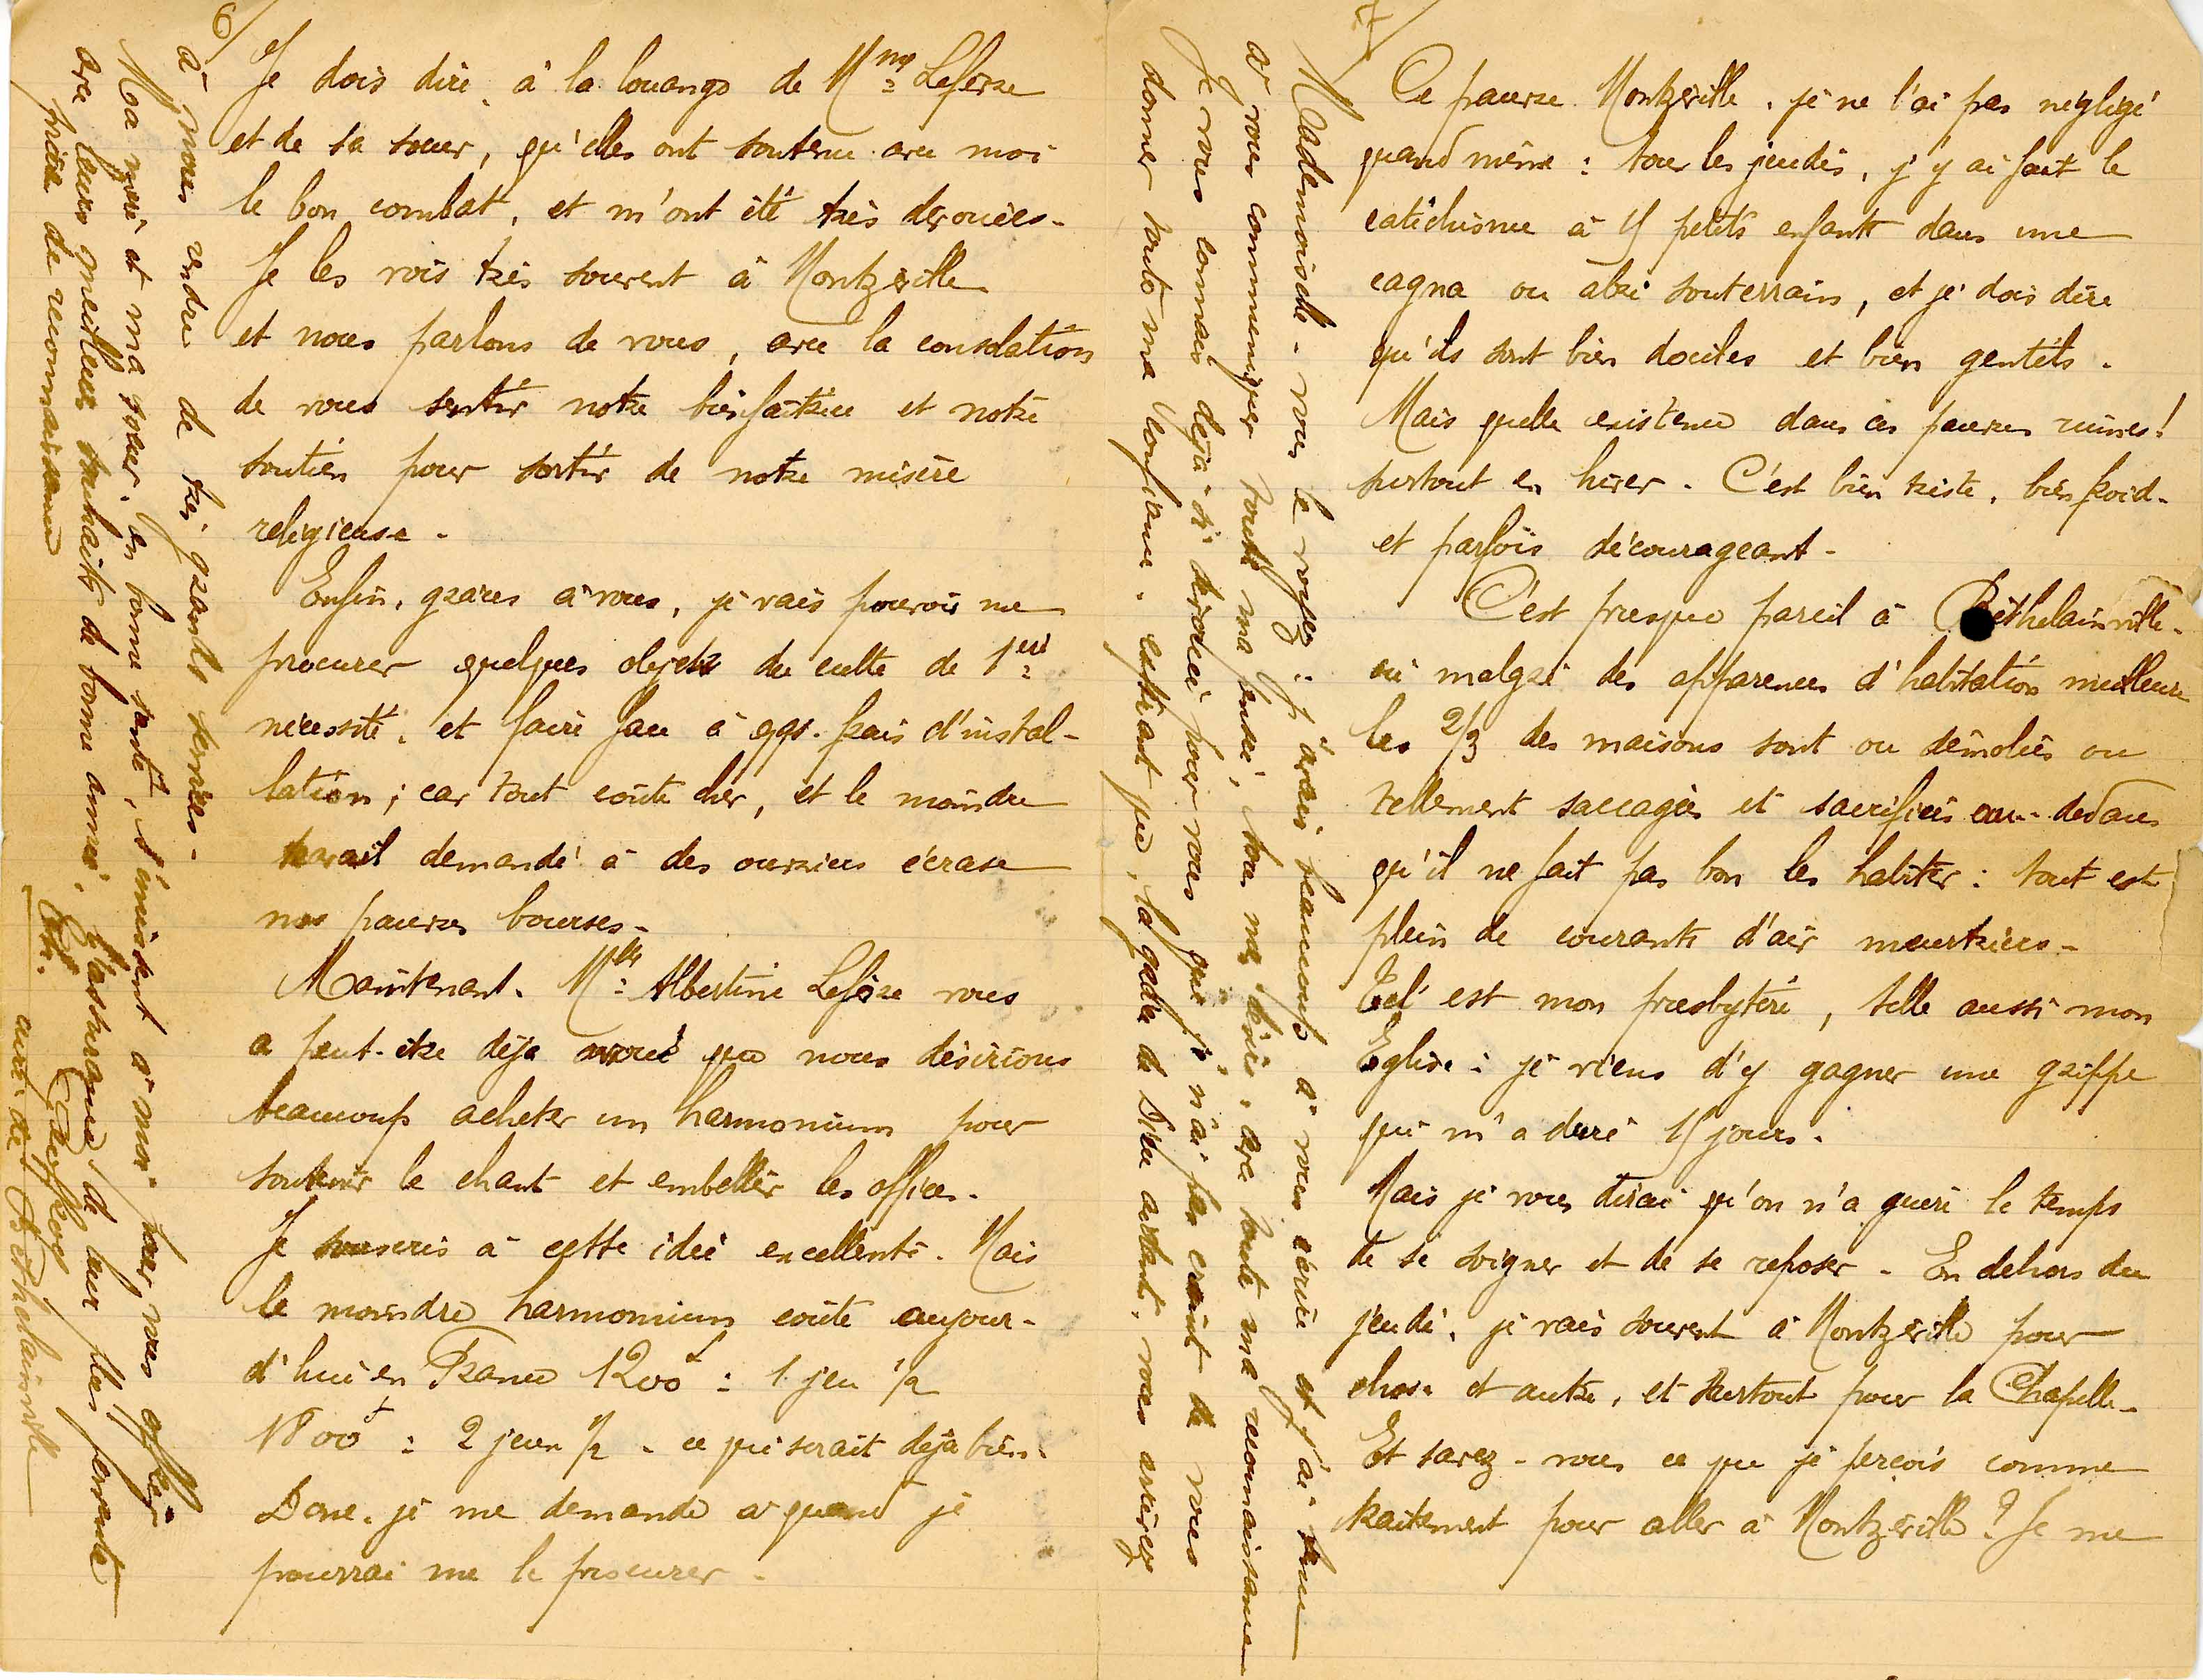 6/
Je dois dire, à la louange de Mme Lefèvre
et de sa sœur, qu'elles ont soutenu avec moi
le bon combat, et m'ont été très dévouées -
Je les vois très souvent à Montzéville
et nous parlons de vous, avec la consolation
de vous sentir notre bienfaitrice et notre
soutien pour sortir de notre misère
religieuse -
Enfin, grâces à vous, je vais pouvoir me
procurer quelques objets du culte de 1ère
nécessité, et faire face à qqs. frais d'instal-
lation ; car tout coûte cher, et le moindre
travail demandé à des ouvriers écrase
nos pauvres bourses -
Maintenant. Mlle Albertine Lefèvre vous
a peut-être déjà avoué que nous désirions
beaucoup acheter un harmonium pour
soutenir le chant et embellir les offices -
Je souscris à cette idée excellente. Mais
le moindre harmonium coûte aujour-
d'hui en France 1200f : 1 jeu 1/2
1800f : 2 jeux 1/2 - ce qui serait déjà bien.
Donc, je me demande à quand je
pourrai me le procurer -
7/
Ce pauvre Montzéville, je ne l'ai pas négligé
quand même : tous les jeudis, j'y ai fait le
catéchisme à 4 petits enfants dans une
cagna ou abri souterrain, et je dois dire
qu'ils sont bien dociles et bien gentils .
Mais quelle existence dans ces pauvres ruines !
surtout en hiver - C'est bien triste, bien froid -
et parfois décourageant -
C'est presque pareil à Béthelainville -
où malgré des apparences d'habitation meilleure
les 2/3 des maisons sont ou démolies ou
tellement saccagées et sacrifiées au-dedans
qu'il ne fait pas bon les habiter : tout est
plein de courants d'air meurtriers -
Tel est mon presbytère, telle aussi mon
Eglise : je viens d'y gagner une grippe
qui m'a duré 15 jours .
Mais je vous dirai qu'on n'a guère le temps
de se soigner et de se reposer - En dehors du
jeudi, je vais souvent à Montzéville pour
chose et autre, et surtout pour la Chapelle -
Et savez-vous ce que je perçois comme
traitement pour aller à Montzéville ? Je me
Mademoiselle - vous le voyez : j'avais beaucoup à vous écrire et j'ai tenu
à vous communiquer toute ma pensée, tous mes désirs, avec toute ma reconnaissance
Je vous connais déjà si dévouée pour nous que je n'ai pas craint de vous
donner toute ma confiance . estimant que, la gloire de Dieu aidant, vous arriverez
à nous rendre de très grands services -
Ma mère et ma sœur, en bonne santé, s'unissent à moi pour vous offrir
avec leurs meilleurs souhaits de bonne année, l'assurance de leur plus fervente
prière de reconnaissance
curé de Béthelainville